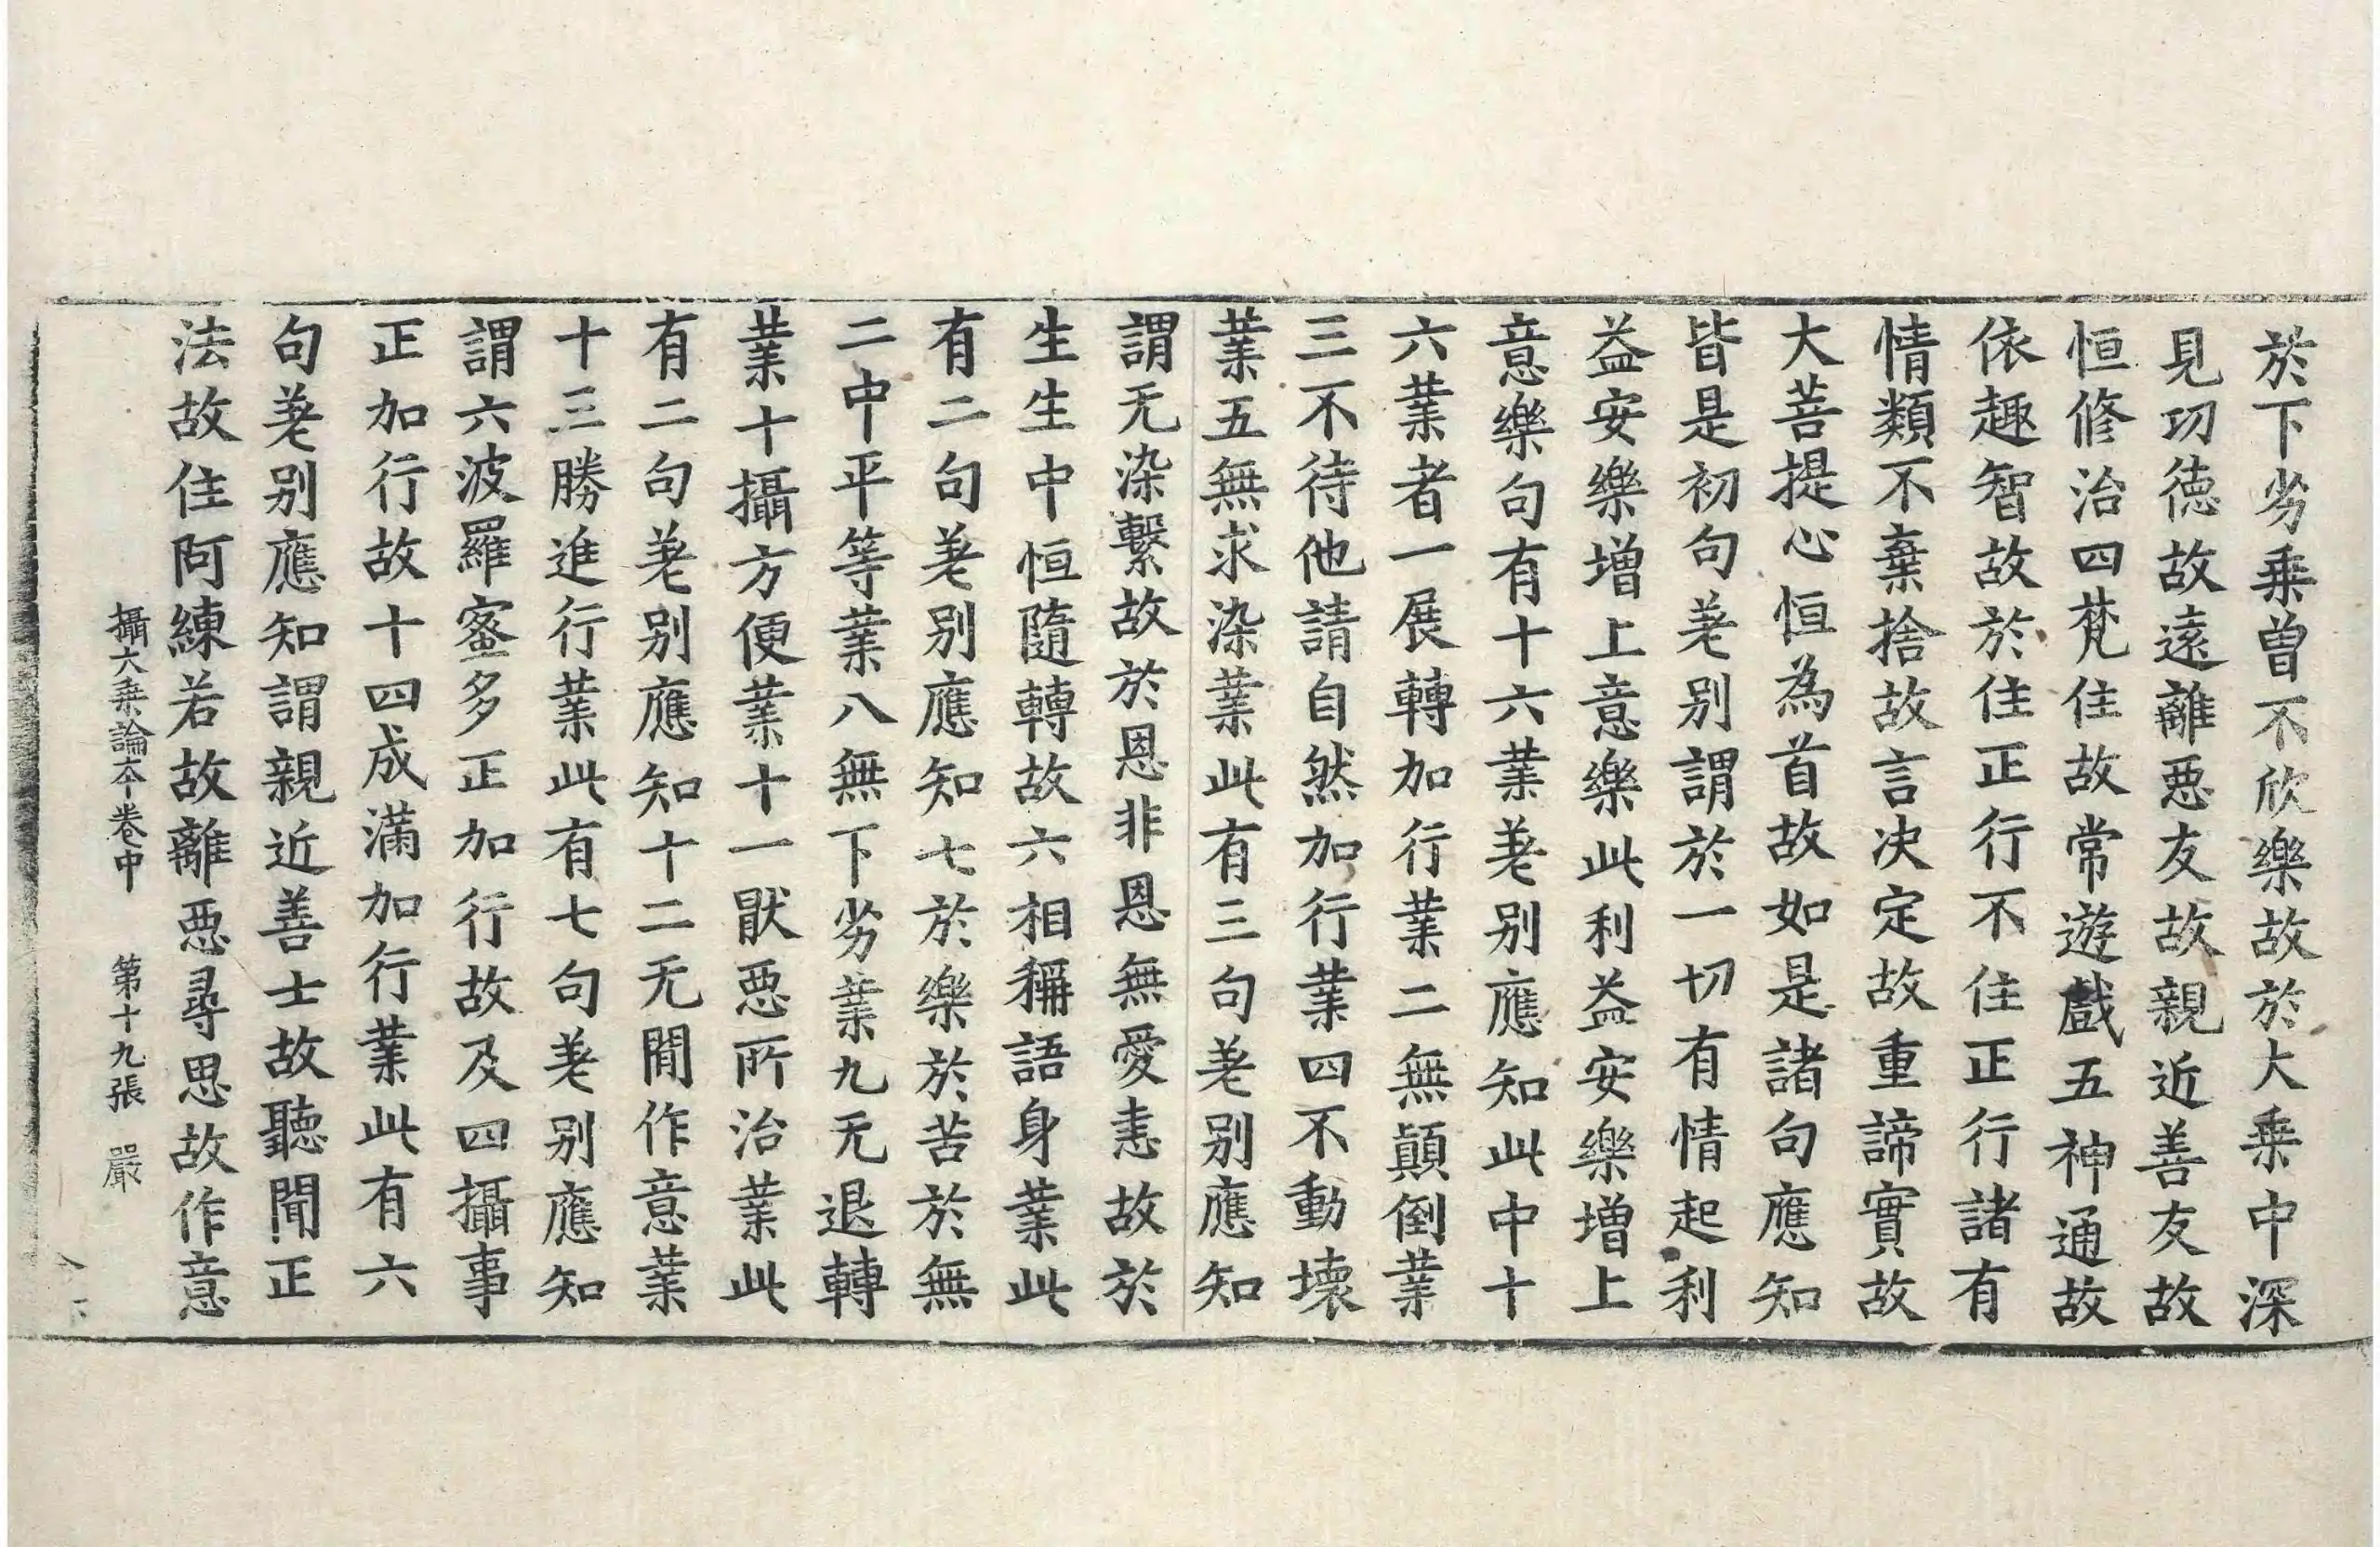 於下劣乗曾不欣樂故於大乗中深
見功徳故遠離悪友故親近善友故
恒修治四梵住故常遊戯五神通故
依趣智故於住正行不住正行諸有
情類不棄捨故言决定故重諦實故
大菩提心恒為首故如是諸句應知
皆是初句差别謂於一切有情起利
益安樂増上意樂此利益安樂増上
意樂句有十六業差别應知此中十
六業者一展轉加行業二無顛倒業
三不待他請自然加行業四不動壊
業五無求染業此有三句差别應知
謂无染繫故於恩非恩無愛恚故於
生生中恒隨轉故六相稱語身業此
有二句差别應知七於樂於苦於無
二中平等業八無下劣業九无退轉
業十攝方便業十一猒悪所治業此
有二句差别應知十二无間作意業
十三勝進行業此有七句差别應知
謂六波羅蜜多正加行故及四攝事
正加行故十四成滿加行業此有六
句差别應知謂親近善士故聽聞正
法故住阿練若故離悪尋思故作意
攝大乗論夲卷中 第十九張 嚴